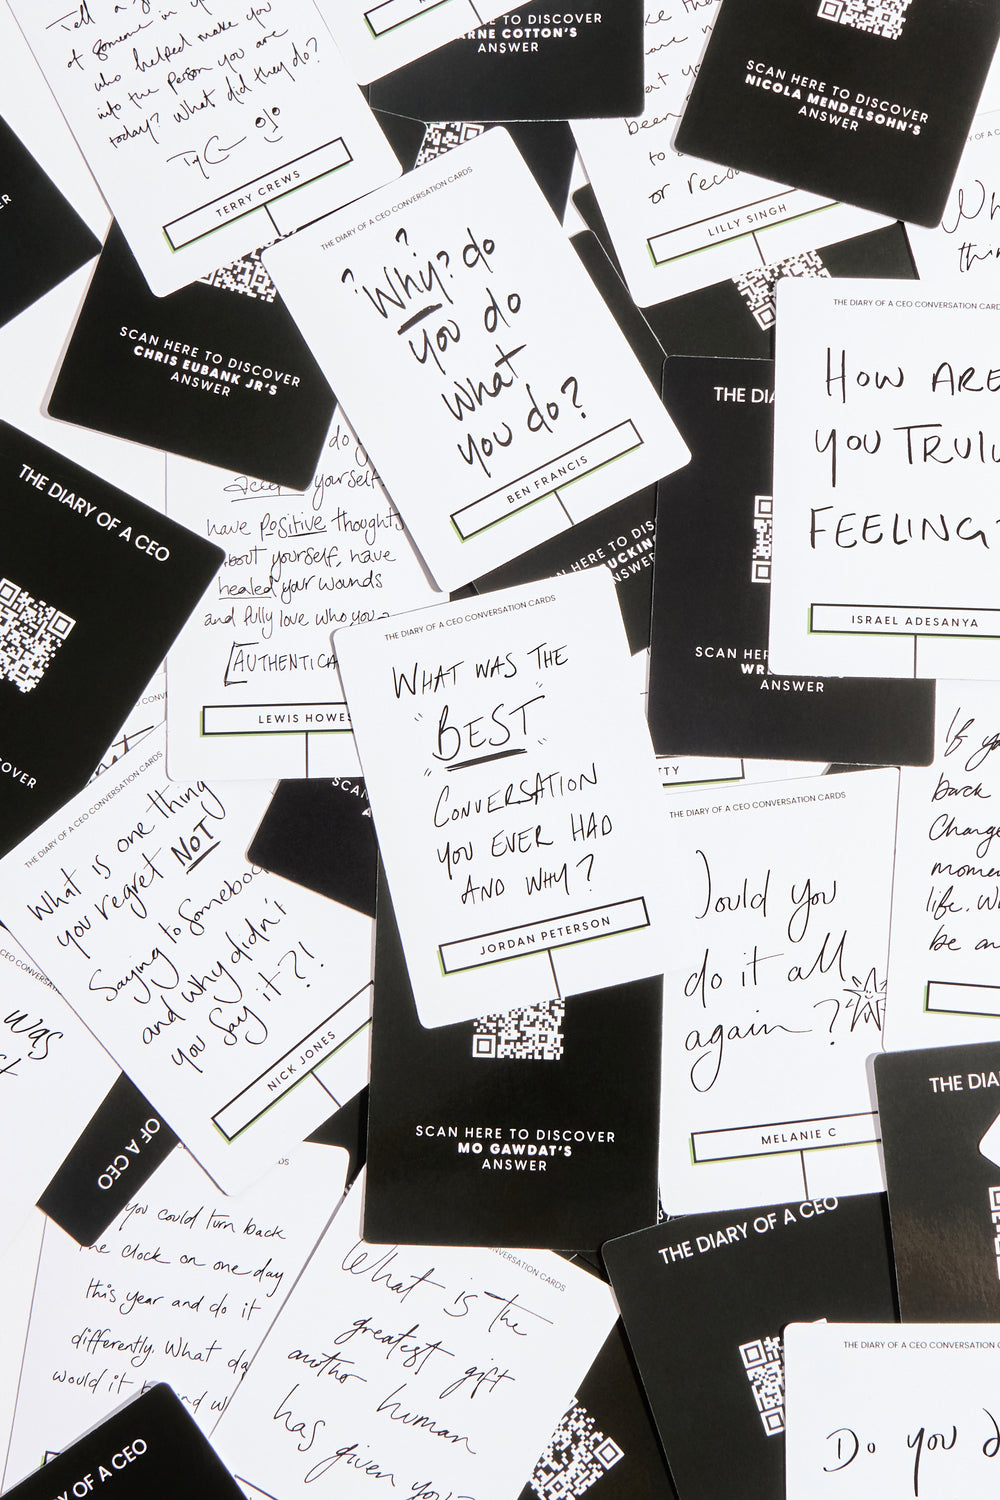 Tell a
of someone in
who helped make you
into the person you are
today? What did they do?
TERRY CREWS
SCAN HERE TO DISCOVER
ARNE COTTON'S
ANSWER
to
or
LILLY SINGH
SCAN HERE TO DISCOVER
NICOLA MENDELSOHN'S
ANSWER
SCAN HERE TO DISCOVER
CHRIS EUBANK JR'S
ANSWER
THE DIARY OF A CEO CONVERSATION CARDS
? ?
Why? do
you do
what
you do?
BEN FRANCIS
THE DIARY OF A CEO CONVERSATION CARDS
HOW ARE
YOU TRULY
FEELING?
ISRAEL ADESANYA
THE DIA
SCAN HER
WR
ANSWER
THE DIARY OF A CEO
OVER
do y
yourself.
have positive thoughts
about yourself, have
healed your wounds
and fully love who you
[AUTHENTICA
LEWIS HOWES
N HERE TO DIS
UCKIN
NSWER
THE DIARY OF A CEO CONVERSATION CARDS
WHAT WAS THE
"BEST"
"CONVERSATION
YOU EVER HAD
AND WHY?
JORDAN PETERSON
TTY
THE DIARY OF A CEO CONVERSATION CARDS
What is one thing
you regret NOT
Saying to somebod
and why didn't
you say it?!
NICK JONES
SCAN
THE DIARY OF A CEO CONVERSATION CARDS
ould you
do it all
again?
MELANIE C
If yo
back
Change
mome
life. W
be an
was
SCAN HERE TO DISCOVER
MO GAWDAT'S
ANSWER
OF A CEO
you could turn back
the clock on one day
this year and do it
differently. What da
would it
THE DIARY OF A CEO
THE DIA
NVERSATION CARDS
What is the
greatest gift
another human
has given you?
Y OF A CEO
THE DIARY OF A CEO CONVERSATION C
Do you d